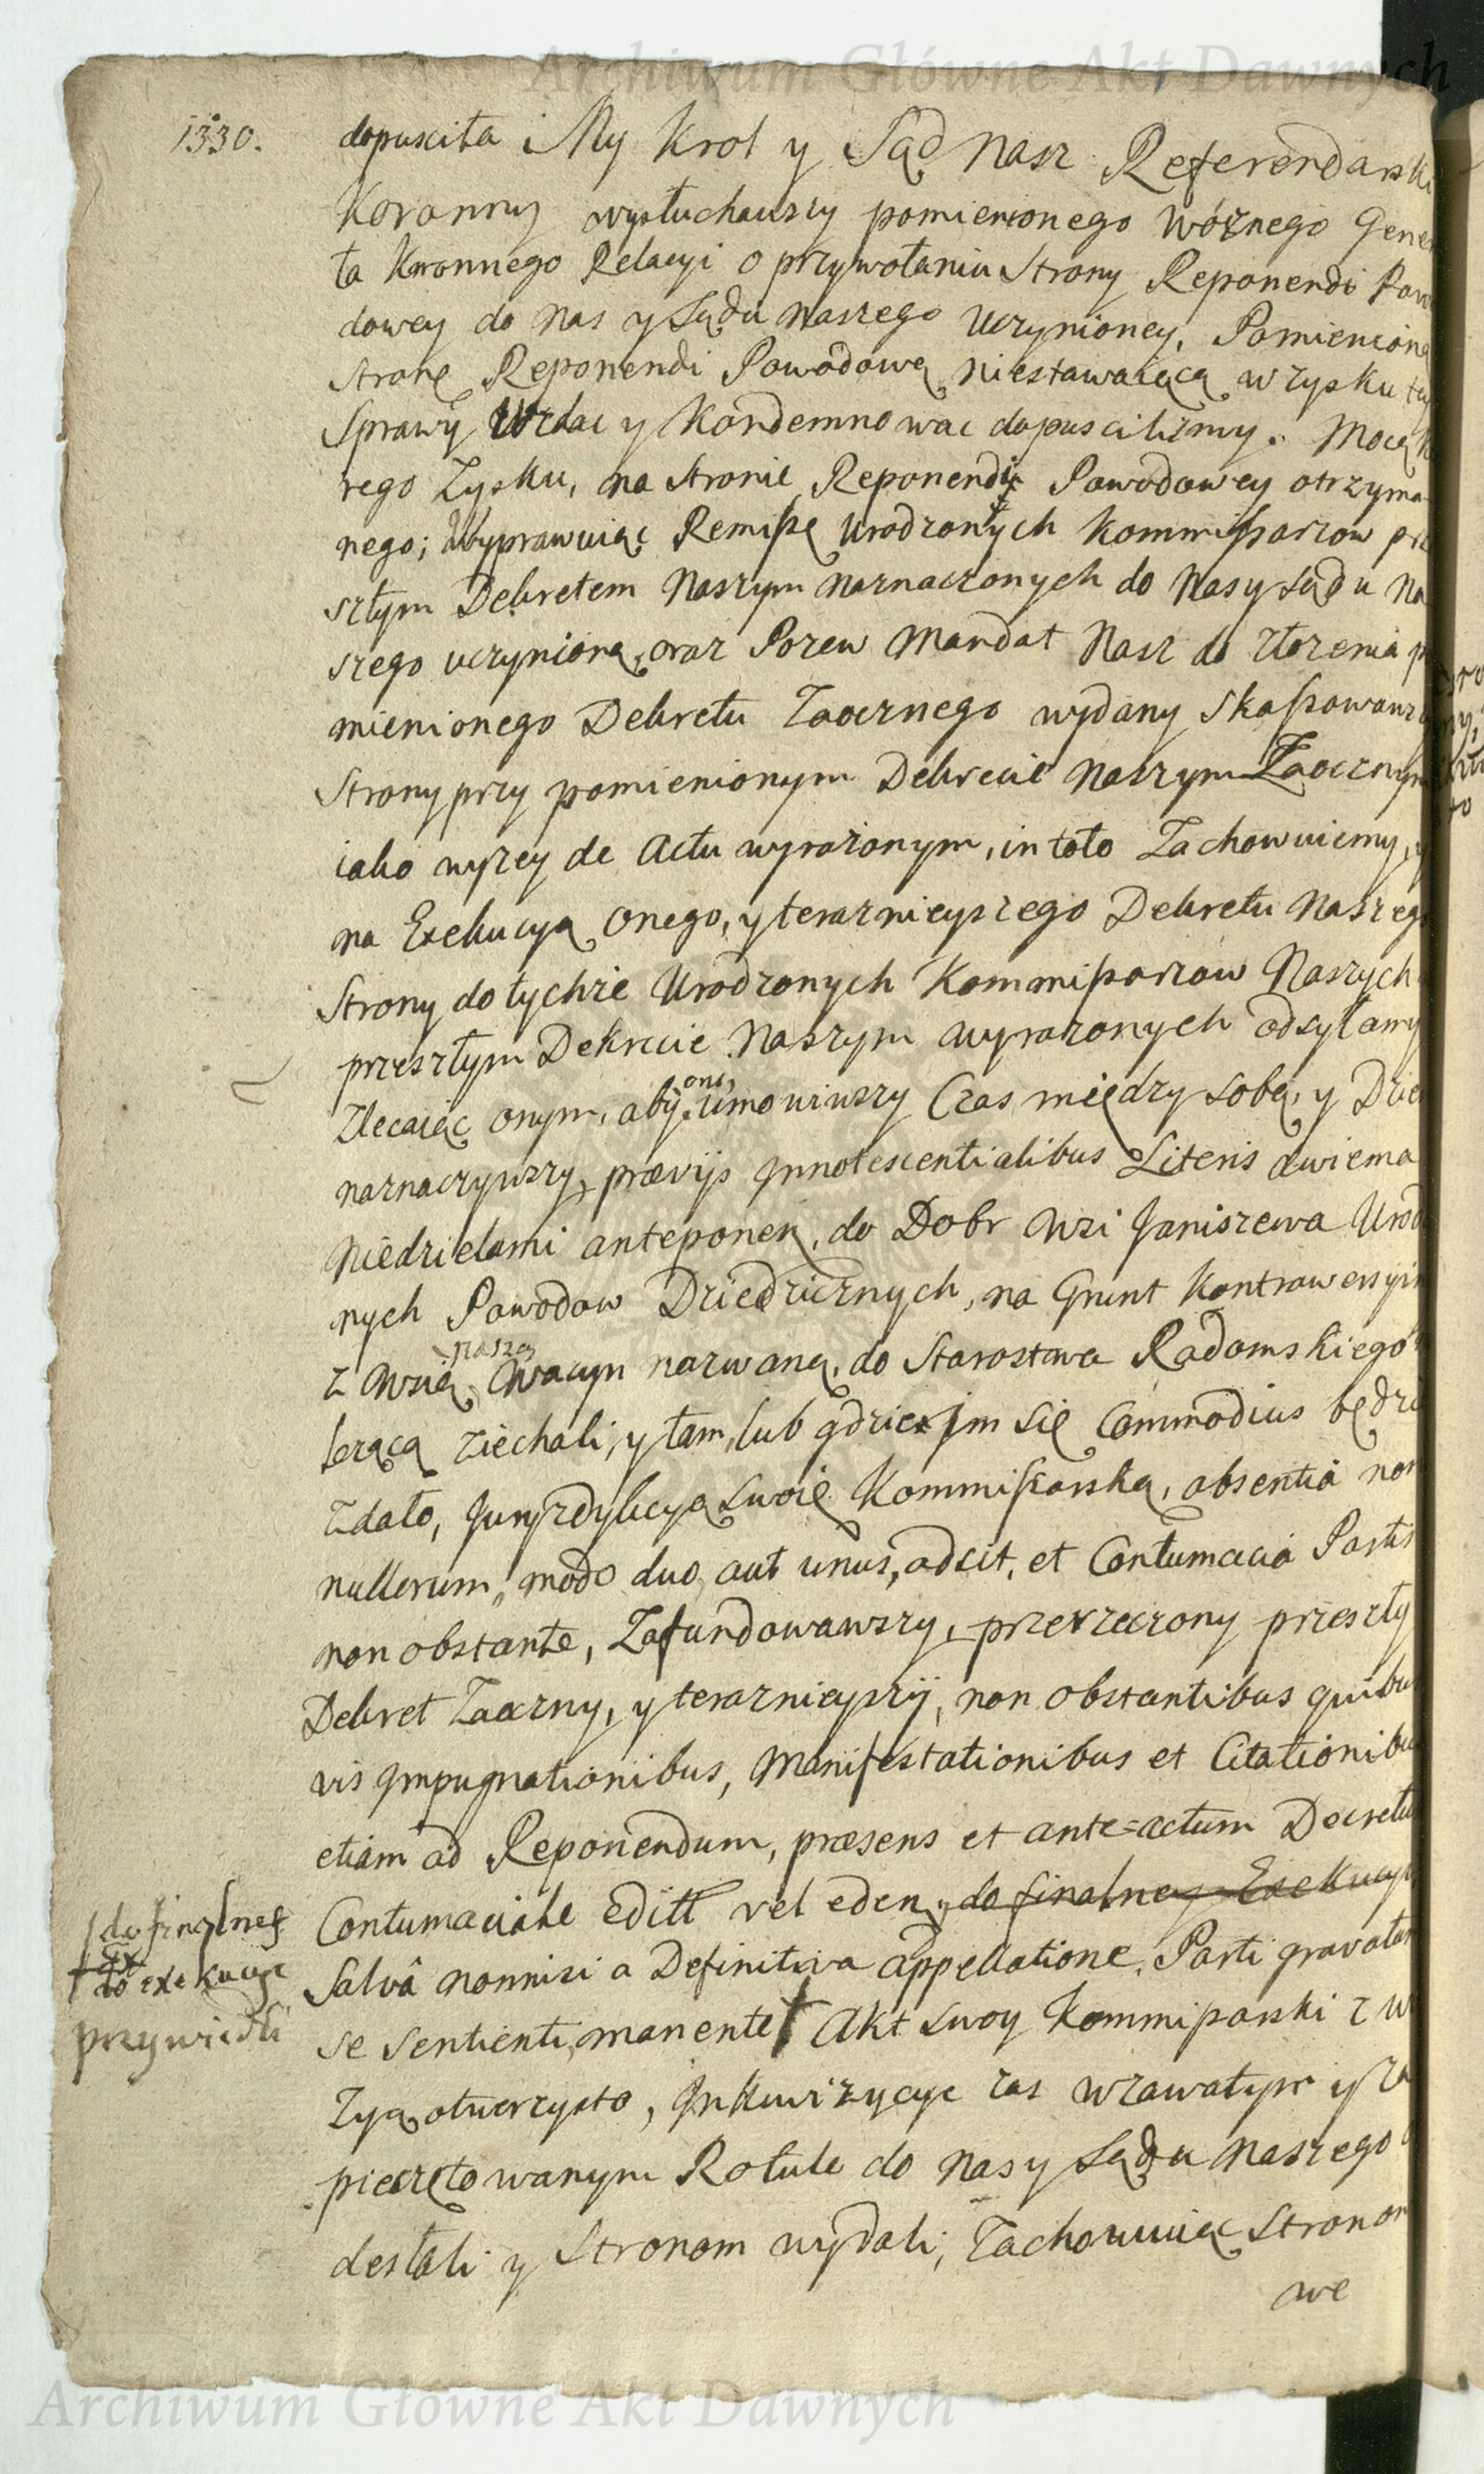 Archiwum Główne Akt Dawnych
1330.
dopusciła i My Krol y Sąd Nasz Referendarski
Koronny wysłuchawszy pomienionego Wóznego Gene
ła Koronnego Relacyi o przywołaniu Strony Reponendi Pow
dowey do Nas y Sądu Naszego Uczynioney, Pomienioną
Stronę Reponendi Powodową niestawaiącą w zysku tey
Sprawy Wzdac y Kondemnowac dopuscilismy. Mocą k
rego Zysku, na Stronie Reponendi Powodowey otrzyma
nego; Wyprawuiąc Remissę Urodzonych Kommissarzow prze
szłym Dekretem Naszym naznaczonych do Nas y Sądu Na
szego uczynioną, oraz Pozew Mandat Nasz do złozenia po
mienionego Dekretu Zaocznego wydany skassowawszy
Strony przy pomienionym Dekrecie Naszym Zaocznym
iako wyzey de Actu wyrazonym, in toto Zachowuiemy, y
na Exekucyą onego, y teraznieyszego Dekretu Naszego
Strony do tychze Urodzonych Kommissarzow Naszych
przeszłym Dekrecie Naszym wyrazonych odsyłamy
Zlecaiąc onym, aby oni, umowiwszy Czas między sobą, y Dzie
naznaczywszy, prævijs Jnnotescentialibus Literis dwiema
Niedzielami anteponen, do Dobr Wsi Janiszewa Urod
nych Powodow Dziedzicznych, na Grunt Kontrowersyi
z Wsią Naszą Wacyn nazwaną, do Starostwa Radomskiego
lezącą ziechali, y tam, lub gdzie Jm się Commodius będzie
zdało, Juryzdykcyą swoię Kommissarską, absentiâ non
nullorum, modo duo aut unus, adsit, et Contumaciâ Partis
non obstante, Zafundowawszy, przerzeczony przeszły
Dekret Zaoczny, y teraznieyszy, non obstantibus quibus
vis Jmpugnationibus, Manifestationibus et Citationibus
etiam ad Reponendum, præsens et ante=actum Decretum
Contumaciale editt vel eden, do finalney Exekucyi
do finalney
exekucyi
przywiedli
Salvâ nonnisi a Definitiva appellatione, Parti gravatam
se sentienti, manente Akt swoy Kommissarski z w
Zyą otworzysto, Jnkwizycye zas w zawartym y za
pieczętowanym Rotule do Nas y Sądu Naszego
desłali y Stronom wydali, Zachowuiąc Stronom
we
Archiwum Główne Akt Dawnych